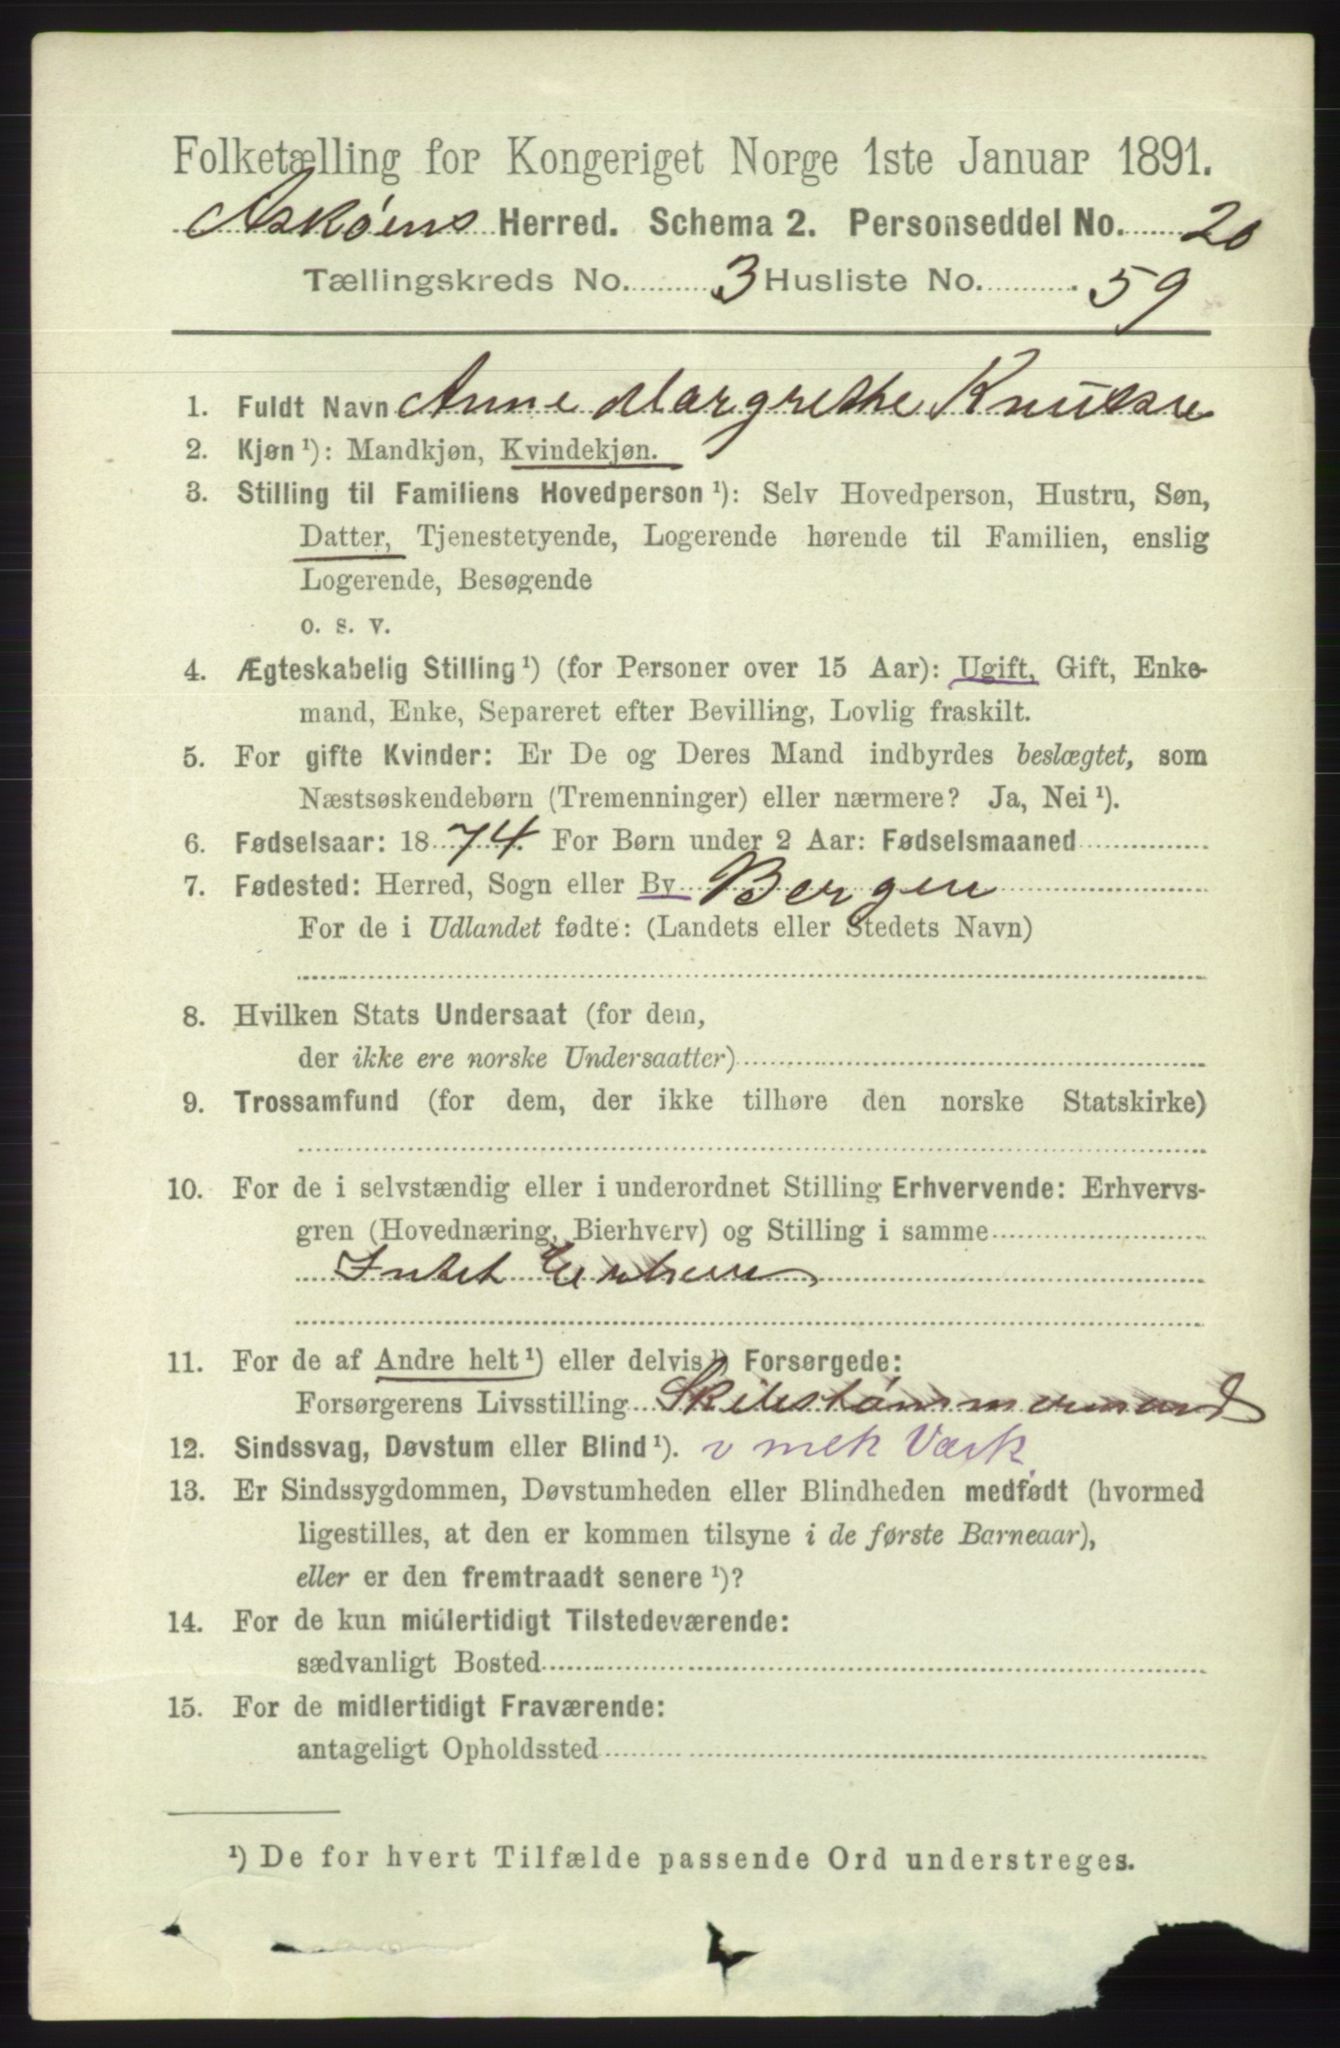 Folketælling for Kongeriget Norge 1ste Januar 1891.
Askøens Herred. Schema 2. Personseddel No. 20
Tællingskreds No. 3 Husliste No. 59
1. Fuldt Navn Anne Margrethe Knudsen
2. Kjøn ¹): Mandkjøn, Kvindekjøn.
3. Stilling til Familiens Hovedperson ¹): Selv Hovedperson, Hustru, Søn,
Datter, Tjenestetyende, Logerende hørende til Familien, enslig
Logerende, Besøgende
o. s. v.
4. Ægteskabelig Stilling ¹) (for Personer over 15 Aar): Ugift, Gift, Enke-
mand, Enke, Separeret efter Bevilling, Lovlig fraskilt.
5. For gifte Kvinder: Er De og Deres Mand indbyrdes beslægtet, som
Næstsøskendebørn (Tremenninger) eller nærmere? Ja, Nei ¹).
6. Fødselsaar: 1874. For Børn under 2 Aar: Fødselsmaaned
7. Fødested: Herred, Sogn eller By Bergen
For de i Udlandet fødte: (Landets eller Stedets Navn)
8. Hvilken Stats Undersaat (for dem,
der ikke ere norske Undersaatter)
9. Trossamfund (for dem, der ikke tilhøre den norske Statskirke)
10. For de i selvstændig eller i underordnet Stilling Erhvervende: Erhvervs-
gren (Hovednæring, Bierhverv) og Stilling i samme
Intet
11. For de af Andre helt ¹) eller delvis ¹) Forsørgede:
Forsørgerens Livsstilling Skibstømmermand
12. Sindssvag, Døvstum eller Blind ¹). v mek Værk
13. Er Sindssygdommen, Døvstumheden eller Blindheden medfødt (hvormed
ligestilles, at den er kommen tilsyne i de første Barneaar),
eller er den fremtraadt senere ¹)?
14. For de kun midlertidigt Tilstedeværende:
sædvanligt Bosted
15. For de midlertidigt Fraværende:
antageligt Opholdssted
¹) De for hvert Tilfælde passende Ord understreges.